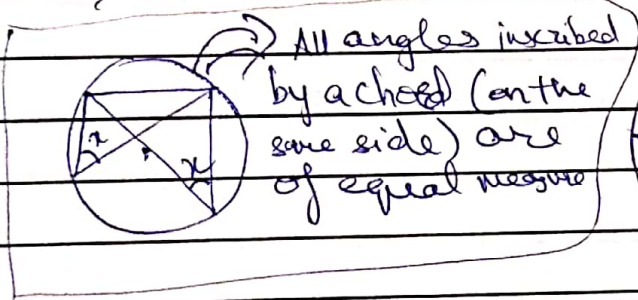 All angles inscribed
by a chord (on the
same side) are
of equal measure
x
x